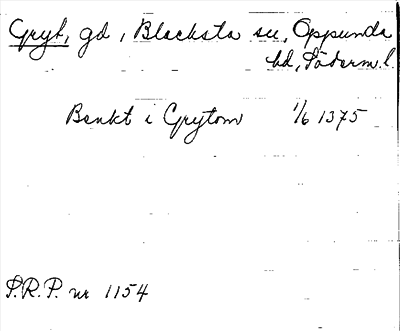 Gryt, gd, Blacksta sn, Oppunda
hd, Söderm.l.
Benkt i Grytom 1/6 1375
S.R.P. nr 1154